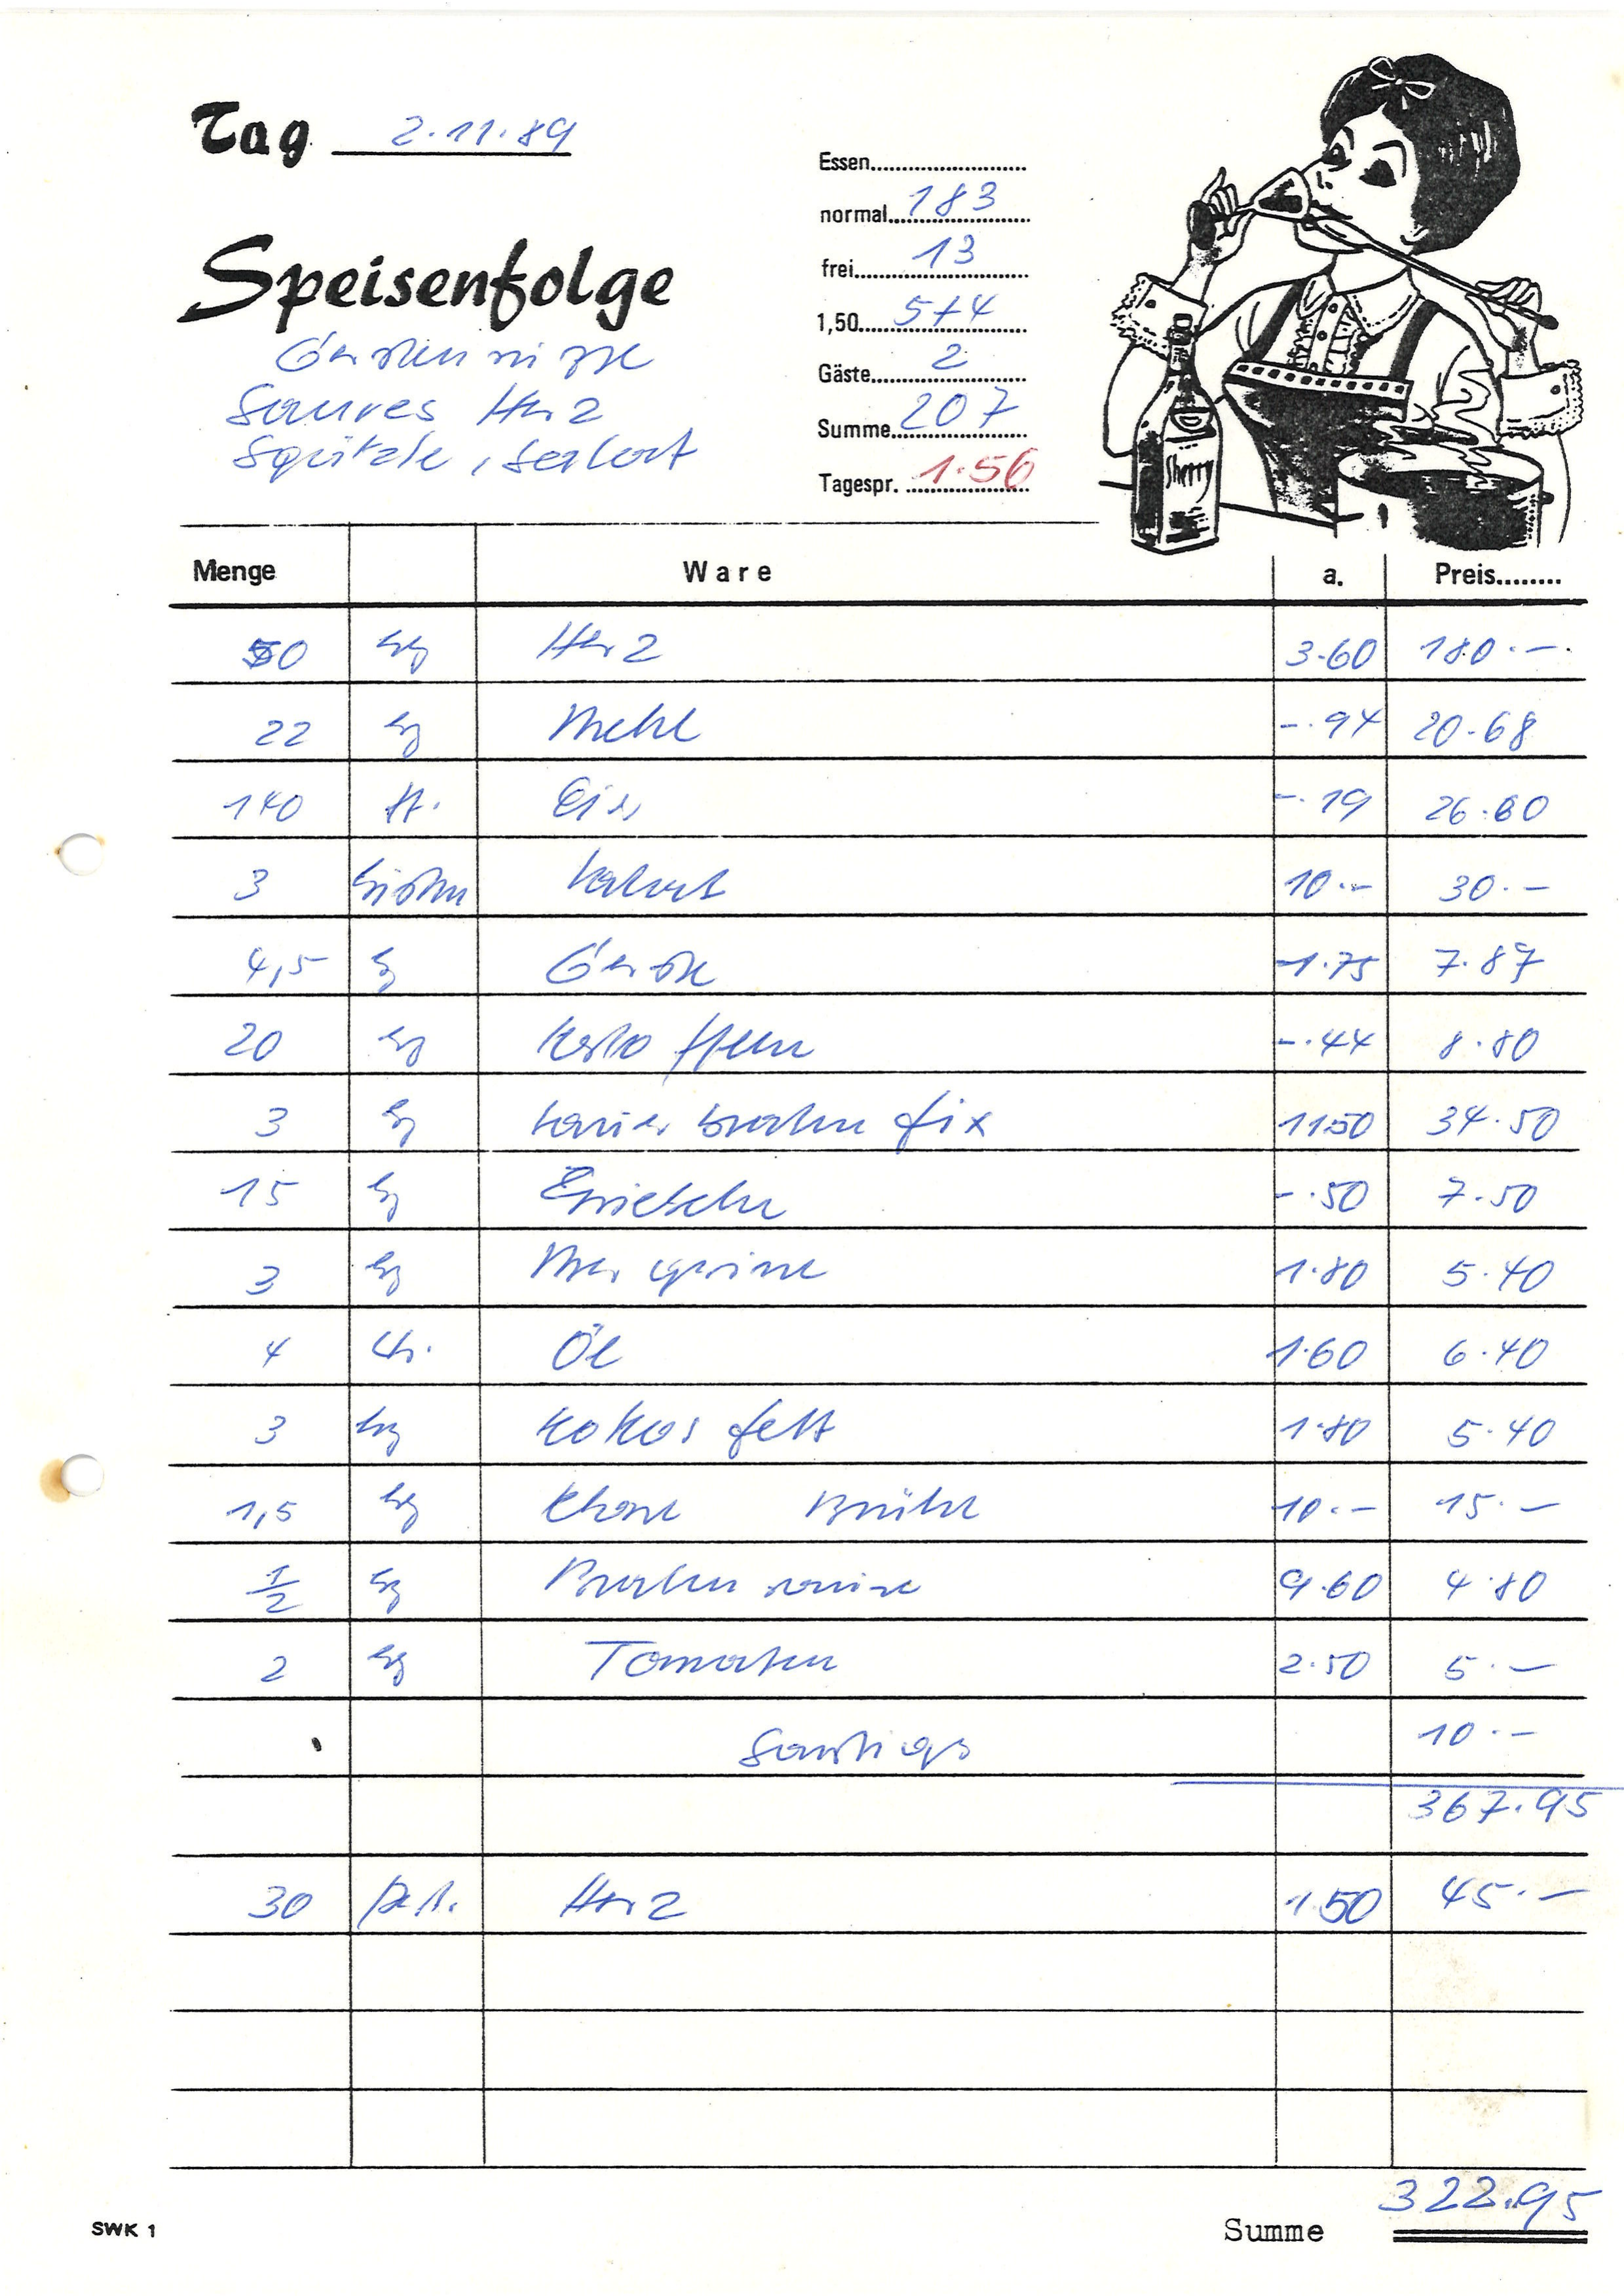 Tag 2.11.89
Speisenfolge
Gerstensuppe
Saures Herz
Spätzle, Salat
Essen
normal 183
frei 13
1,50 5+4
Gäste 2
Summe 207
Tagespr. 1.56
Sherry
Menge Ware a. Preis
50 kg Herz 3.60 180.-
22 kg Mehl -.94 20.68
140 St. Eier -.19 26.60
3 Kisten Salat 10.- 30.-
4,5 kg Gerste 1.75 7.87
20 kg Kartoffeln -.44 8.80
3 kg Sauerbraten fix 11.50 34.50
15 kg -.50 7.50
3 kg Margarine 1.80 5.40
4 Ltr. Öl 1.60 6.40
3 kg Kokosfett 1.80 5.40
1,5 kg Klare Brühe 10.- 15.-
1/2 kg Bratensauce 9.60 4.80
2 kg Tomaten 2.50 5.-
Sonstiges 10.-
367.95
30 Port. Herz 1.50 45.-
Summe 322.95
SWK 1